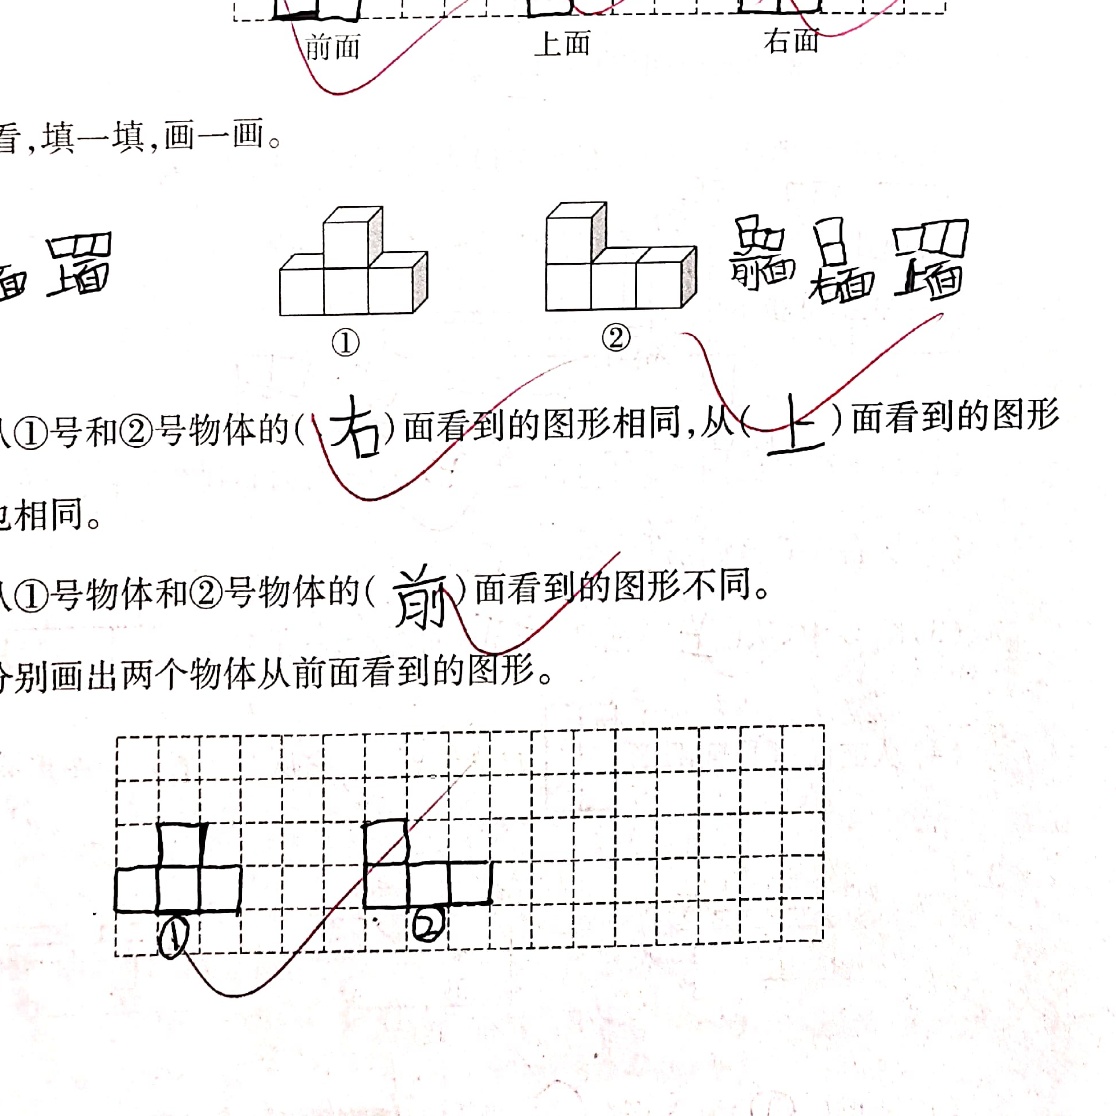 前面 上面 右面
看,填一填,画一画。
面 上面 前面 右面 上面
① ②
从①号和②号物体的(右)面看到的图形相同,从(上)面看到的图形
也相同。
从①号物体和②号物体的(前)面看到的图形不同。
分别画出两个物体从前面看到的图形。
① ②